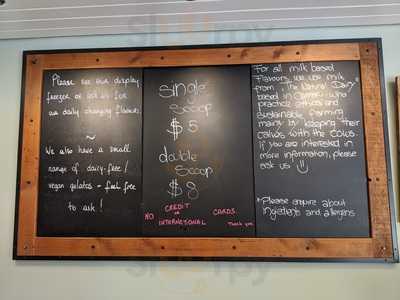 Please see our display
freezer or ask us for
our daily changing flavours.
~
We also have a small
range of dairy-free/
vegan gelatos - feel free
to ask!
single
Scoop
$5
double
Scoop
$8
NO CREDIT CARDS
or
INTERNATIONAL
Thank you
For all milk based
Flavours, we use milk
from "The Natural Dairy"
based in Comer who
practice ethical and
sustainable farming
mainly by keeping their
calves with the cows.
If you are interested in
more information, please
ask us
*Please enquire about
ingredients and allergens